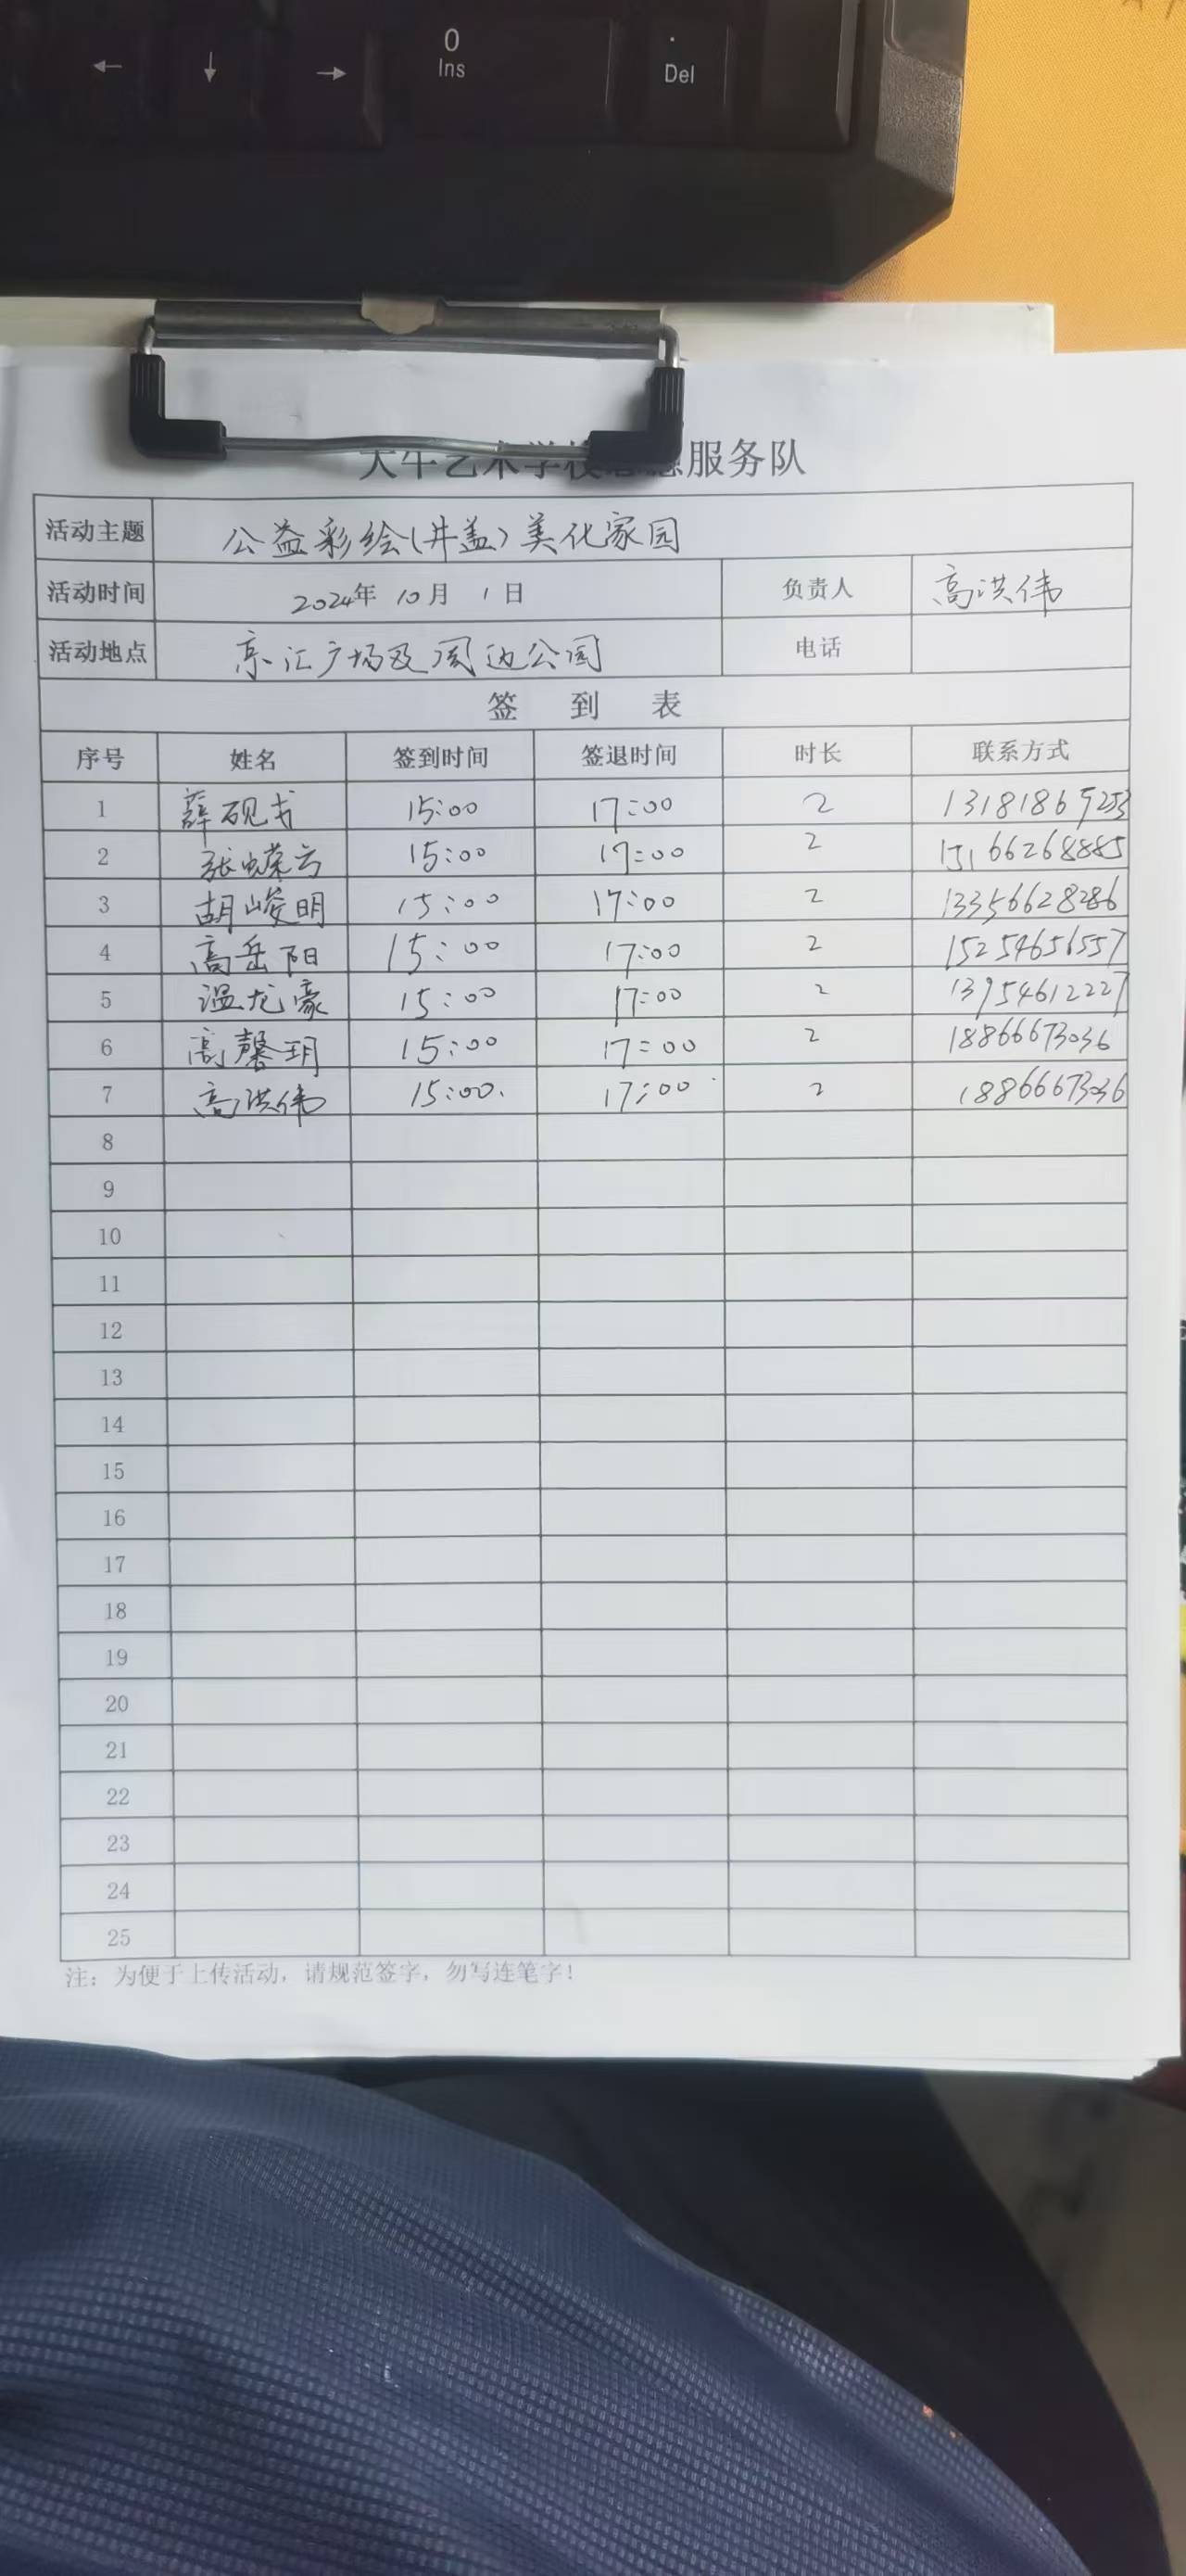 ←
↓
→
0
Ins
.
Del
大牛艺术学校志愿服务队
活动主题 公益彩绘(井盖)美化家园
活动时间 2024年 10月 1日 负责人 高洪伟
活动地点 京汇广场及周边公园 电话
签 到 表
序号 姓名 签到时间 签退时间 时长 联系方式
1 薛砚书 15:00 17:00 2 13181869253
2 张蝶云 15:00 17:00 2 15166268885
3 胡峻明 15:00 17:00 2 13356628286
4 高岳阳 15:00 17:00 2 15254656557
5 温龙豪 15:00 17:00 2 13954612227
6 高馨玥 15:00 17:00 2 18866673036
7 高洪伟 15:00. 17:00 2 18866673036
8
9
10
11
12
13
14
15
16
17
18
19
20
21
22
23
24
25
注：为便于上传活动，请规范签字，勿写连笔字！